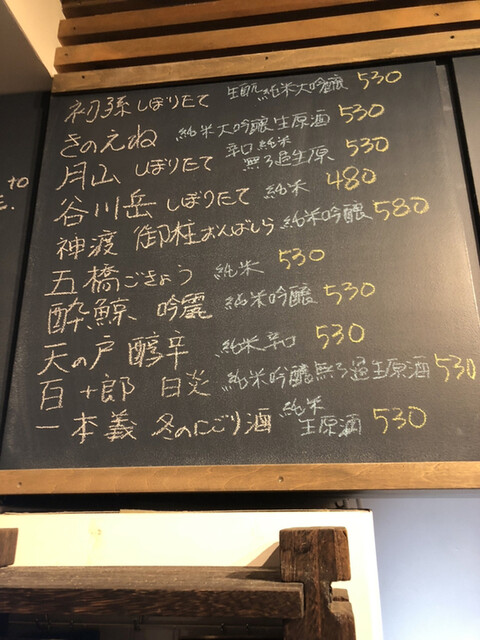 初孫 しぼりたて 生酛純米大吟醸 530
きのえね 純米大吟醸生原酒 530
月山 しぼりたて 辛口純米 無ろ過生原 530
谷川岳 しぼりたて 純米 480
神渡 御柱おんばしら 純米吟醸 580
五橋ごきょう 純米 530
酔鯨 吟麗 純米吟醸 530
天の戸 醇辛 純米辛口 530
百十郎 日炎 純米吟醸無ろ過生原酒 530
一本義 冬のにごり酒 純米 生原酒 530
to